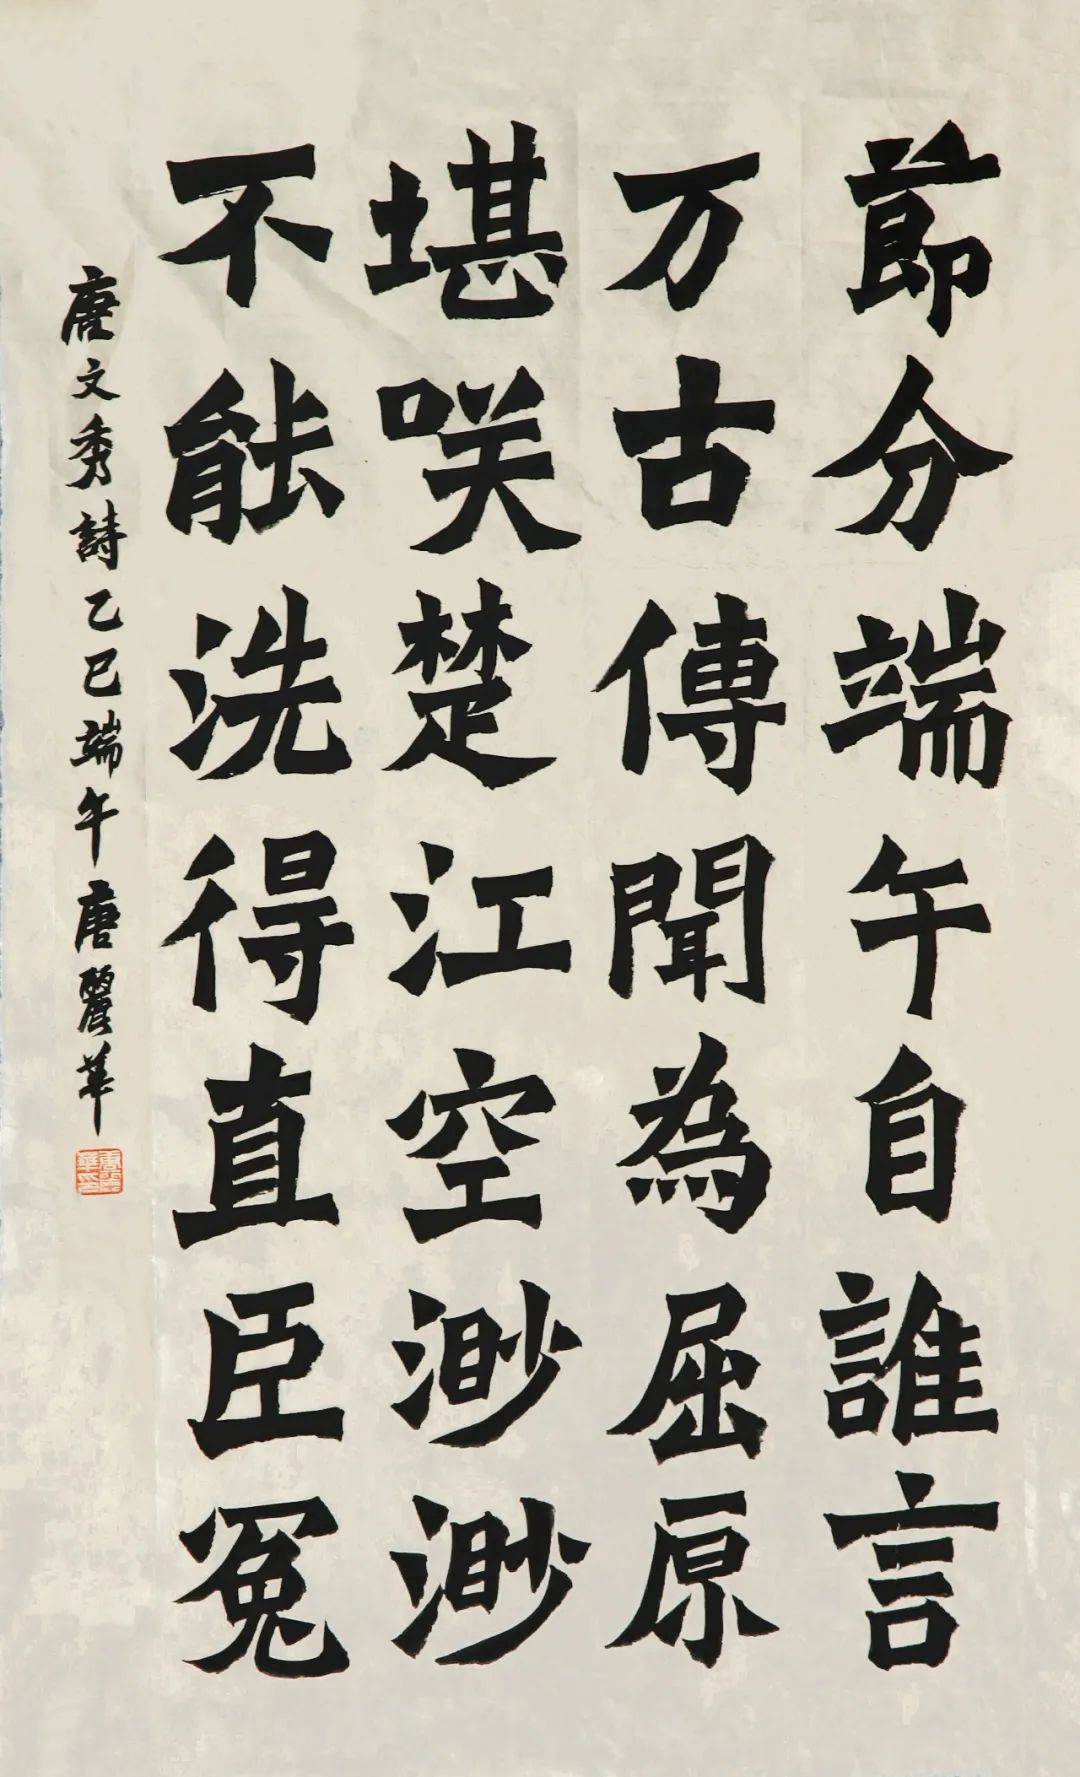 節分端午自誰言
万古傳聞為屈原
堪咲楚江空渺渺
不能洗得直臣冤
唐文秀詩乙巳端午唐麗華